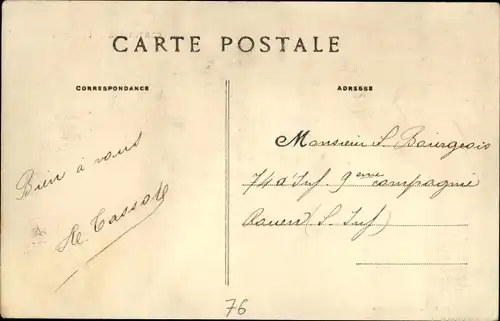 CARTE POSTALE
CORRESPONDANCE
ADRESSE
Bien à vous
Monsieur S. Bourgeois
74 d'Inf. 9eme compagnie
Rouen (S. Inf)
76